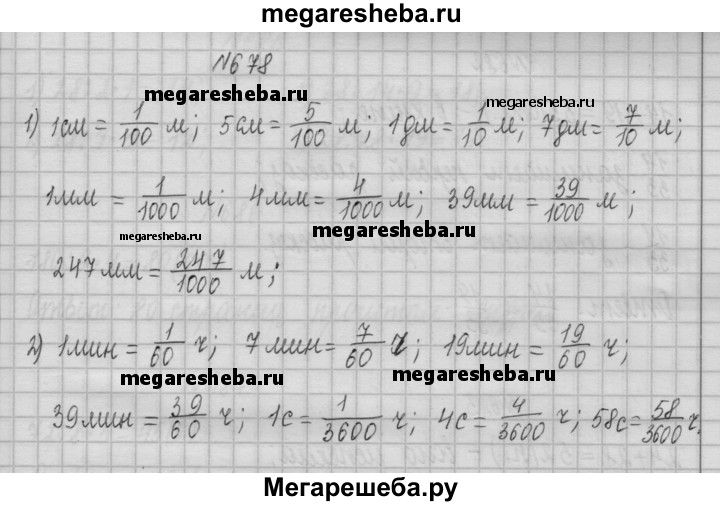 megaresheba.ru
№678
megaresheba.ru
1) 1см = 1/100 м; 5см = 5/100 м; 1дм = 1/10 м; 7дм = 7/10 м;
1мм = 1/1000 м; 4мм = 4/1000 м; 39мм = 39/1000 м;
megaresheba.ru megaresheba.ru
247мм = 247/1000 м;
2) 1мин = 1/60 ч; 7мин = 7/60 ч; 19мин = 19/60 ч;
megaresheba.ru megaresheba.ru
39мин = 39/60 ч; 1с = 1/3600 ч; 4с = 4/3600 ч; 58с = 58/3600 ч.
Мегарешеба.ру